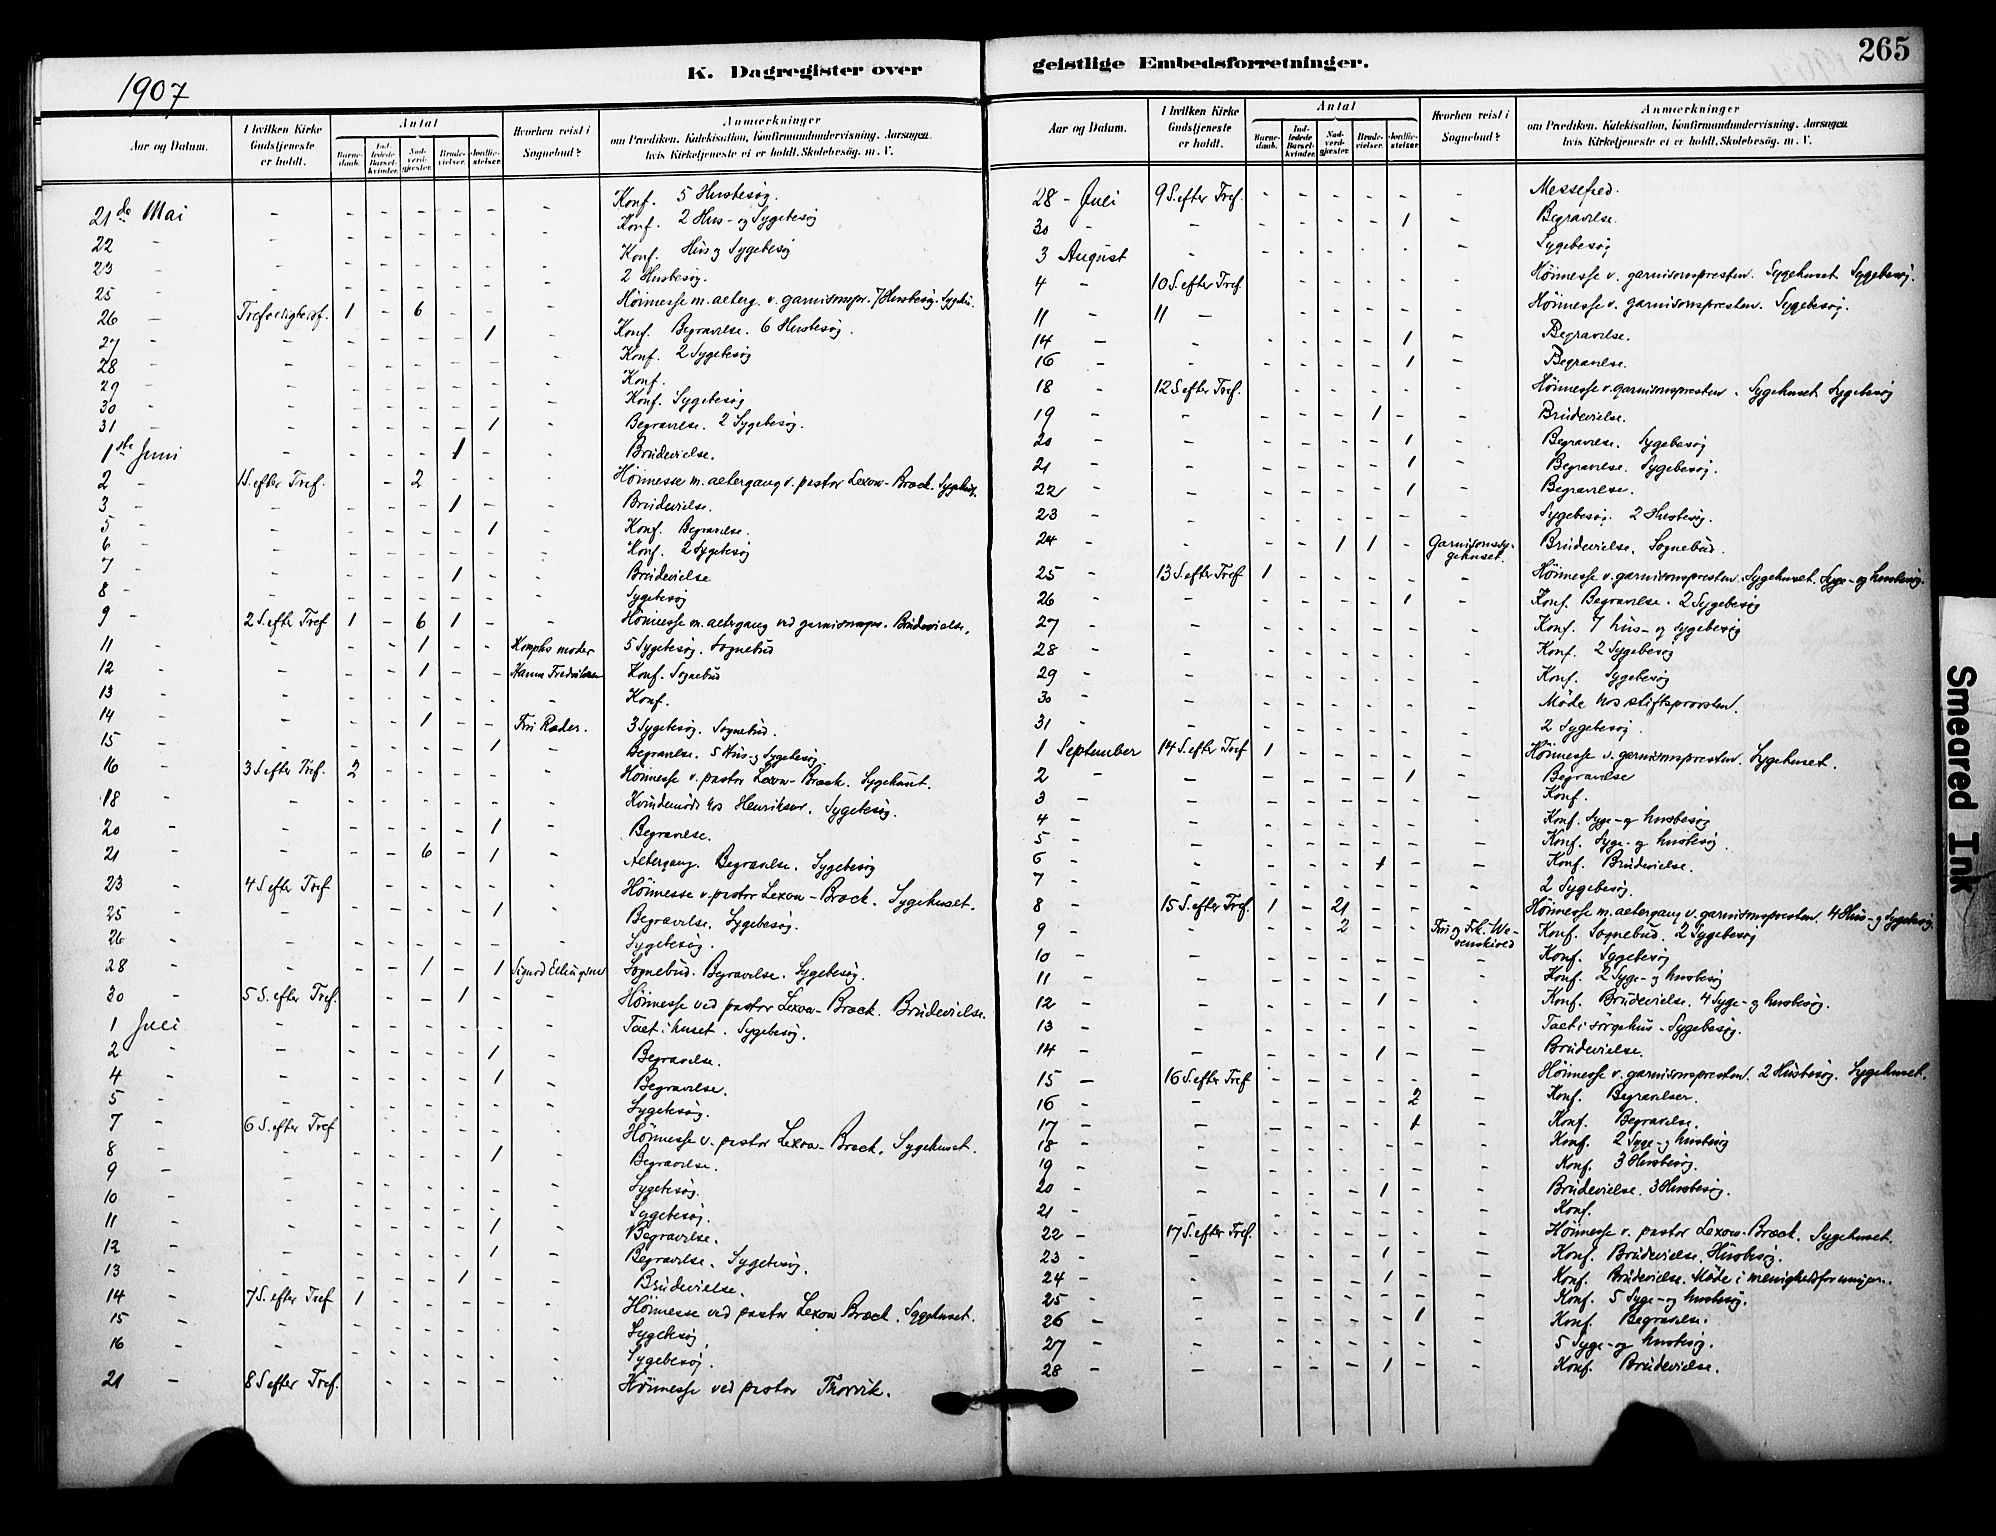 265
K. Dagregister over geistlige Embedsforretninger.
1907
Aar og Datum. I hvilken Kirke Gudstjeneste er holdt. Antal Barnedaab. Indledede Barselkvinder. Nadverdgjæster. Brudevielser. Jordfæstelser. Hvorhen reist i Sognebud? Anmærkninger om Prædiken, Katekisation, Konfirmandundervisning, Aarsagen hvis Kirketjeneste ei er holdt, Skolebesøg, m. V.
21de Mai - - - - - - - Konf. 5 Husbesøg.
22 - - - - - - - - Konf. 2 Hus- og Sygebesøg
23 - - - - - - - - Konf. Hus og Sygebesøg
25 - - - - - - - - 2 Husbesøg.
26 - Trefoldighedsf. 1 - 6 - - - Høimesse m. alterg. v. garnisonspr. 7 Husbesøg. Sygehu.
27 - - - - - - 1 - Konf. Begravelse. 6 Husbesøg.
28 - - - - - - - - Konf. 2 Sygebesøg
29 - - - - - - - - Konf.
30 - - - - - - - - Konf. Sygebesøg
31 - - - - - - 1 - Begravelse. 2 Sygebesøg.
1ste Juni - - - - 1 - - Brudevielse.
2 - 1 S. efter Tref. - - 2 - - - Høimesse m. altergang v. pastor Lexow-Brock. Sygehus.
3 - - - - - 1 - - Brudevielse.
5 - - - - - - 1 - Konf. Begravelse.
6 - - - - - - - - Konf. 2 Sygebesøg
7 - - - - - 1 - - Brudevielse
8 - - - - - - - - Sygebesøg
9 - 2 S. eftr Tref 1 - 6 1 - - Høimesse m. altergang ved garnisonspr. Brudevielse.
11 - - - - 1 - - moder 5 Sygebesøg. Sognebud
12 - - - - 1 - - Hanna Konf. Sognebud
13 - - - - - - - - Konf.
14 - - - - 1 - - Fru Rader. 3 Sygebesøg. Sognebud.
15 - - - - - - 1 - Begravelse. 5 Hus- og Sygebesøg.
16 - 3 S. efter Tref. 2 - - - - - Høimesse v. pastor Lexow-Brock. Sygehuset.
18 - - - - - - - - Kvindemøde hos Henriksen. Sygebesøg.
20 - - - - - - 1 - Begravelse.
21 - - - - 6 - 1 - Altergang. Begravelse. Sygebesøg
23 - 4 S efter Tref - - - - - - Høimesse v. pastor Lexow-Brock. Sygehuset.
25 - - - - - - 1 - Begravelse. Sygebesøg.
26 - - - - - - - - Sygebesøg.
28 - - - - 1 - 1 Sigurd Ellingsen Sognebud. Begravelse. Sygebesøg.
30 - 5 S. efter Tref. - - - 1 - - Høimesse ved pastor Lexow-Brock. Brudevielse.
1 Juli - - - - - - - Talt i huset. Sygebesøg.
2 - - - - - - 1 - Begravelse.
4 - - - - - - 1 - Begravelse.
5 - - - - - - - - Sygebesøg.
7 - 6 S. efter Tref - - - - - - Høimesse v. pastor Lexow-Brock. Sygehuset.
8 - - - - - - 1 - Begravelse.
9 - - - - - - - - Sygebesøg.
10 - - - - - - - - Sygebesøg.
11 - - - - - - 1 - Begravelse.
12 - - - - - - 1 - Begravelse. Sygebesøg.
13 - - - - - 1 - - Brudevielse.
14 - 7 S. efter Tref 1 - - - - - Høimesse ved pastor Lexow Brock. Sygehuset.
15 - - - - - - - - Sygebesøg.
16 - - - - - - - - Sygebesøg.
21 - 8 S efter Tref. - - - - - - Høimesse ved pastor Thorvik.
Aar og Datum. I hvilken Kirke Gudstjeneste er holdt. Antal Barnedaab. Indledede Barselkvinder. Nadverdgjæster. Brudevielser. Jordfæstelser. Hvorhen reist i Sognebud? Anmærkninger om Prædiken, Katekisation, Konfirmandundervisning, Aarsagen hvis Kirketjeneste ei er holdt, Skolebesøg, m. V.
28 - Juli 9 S. efter Tref. - - - - - - Messefred.
30 - - - - - - 1 - Begravelse.
3 August - - - - - - - Sygebesøg
4 - 10 S. efter Tref - - - - - - Høimesse v. garnisonspresten. Sygehuset Sygebesøg.
11 - 11 - - - - - - - Høimesse v. garnisonspresten. Sygebesøg.
14 - - - - - - 1 - Begravelse.
16 - - - - - - 1 - Begravelse.
18 - 12 S. efter Tref. - - - - - - Høimesse v. garnisonspresten. Sygehuset Sygebesøg
19 - - - - - 1 - - Brudevielse.
20 - - - - - - 1 - Begravelse. Sygebesøg
21 - - - - - - 1 - Begravelse. Sygebesøg.
22 - - - - - - 1 - Begravelse.
23 - - - - - - - - Sygebesøg. 2 Husbesøg.
24 - - - - 1 1 - Garnisonssygehuset. Brudevielse. Sognebud.
25 - 13 S. efter Tref 1 - - - - - Høimesse v. garnisonspresten. Sygehuset. Syge- og husbesøg.
26 - - - - - - 1 - Konf. Begravelse. 2 Sygebesøg
27 - - - - - - - - Konf. 7 hus- og sygebesøg
28 - - - - - - - - Konf. 2 Sygebesøg
29 - - - - - - - - Konf. Sygebesøg
30 - - - - - - - - Møde hos stiftsprovsten.
31 - - - - - - - - 2 Sygebesøg.
1 September 14 S. efter Tref 1 - - - - - Høimesse v. garnisonspresten. Sygehuset.
2 - - - - - - 1 - Begravelse
3 - - - - - - - - Konf.
4 - - - - - - - - Konf. Syge- og husbesøg
5 - - - - - - - - Konf. Syge- og husbesøg.
6 - - - - - 1 - - Konf. Brudevielse.
7 - - - - - - - - 2 Sygebesøg.
8 - 15 S. efter Tref. 1 - 21 - - - Høimesse m. altergang v. garnisonspresten. 4 Hus- og Sygebesøg
9 - - - - 2 - - Fru og Frk. Konf. Sognebud. 2 Sygebesøg
10 - - - - - - - - Konf. Sygebesøg
11 - - - - - - - - Konf. 2 Syge- og husbesøg
12 - - - - - 1 - - Konf. Brudevielse. 4 Syge- og husbesøg.
13 - - - - - - - - Talt i sørgehus. Sygebesøg.
14 - - - - - 1 - - Brudevielse.
15 - 16 S. efter Tref - - - - - - Høimesse v. garnisonspresten. 2 Husbesøg. Sygehuset.
16 - - - - - - 2 - Konf. Begravelser.
17 - - - - - - 1 - Konf. Begravelse.
18 - - - - - - - - Konf. 2 Syge- og husbesøg
19 - - - - - - - - Konf. 3 Husbesøg.
20 - - - - - 1 - - Brudevielse. 3 Husbesøg.
21 - - - - - - - - Konf.
22 - 17 S. efter Tref. - - - - - - Høimesse v. pastor Lexow-Brock. Sygehuset.
23 - - - - - 1 - - Konf. Brudevielse. Husbesøg.
24 - - - - - 1 - - Konf. Brudevielse. Møde i menighedsforeningen.
25 - - - - - - - - Konf. 5 Syge- og husbesøg.
26 - - - - - - 1 - Konf. Begravelse.
27 - - - - - - - - 5 Syge- og husbesøg.
28 - - - - - 1 - - Konf. Brudevielse.
Smeared Ink